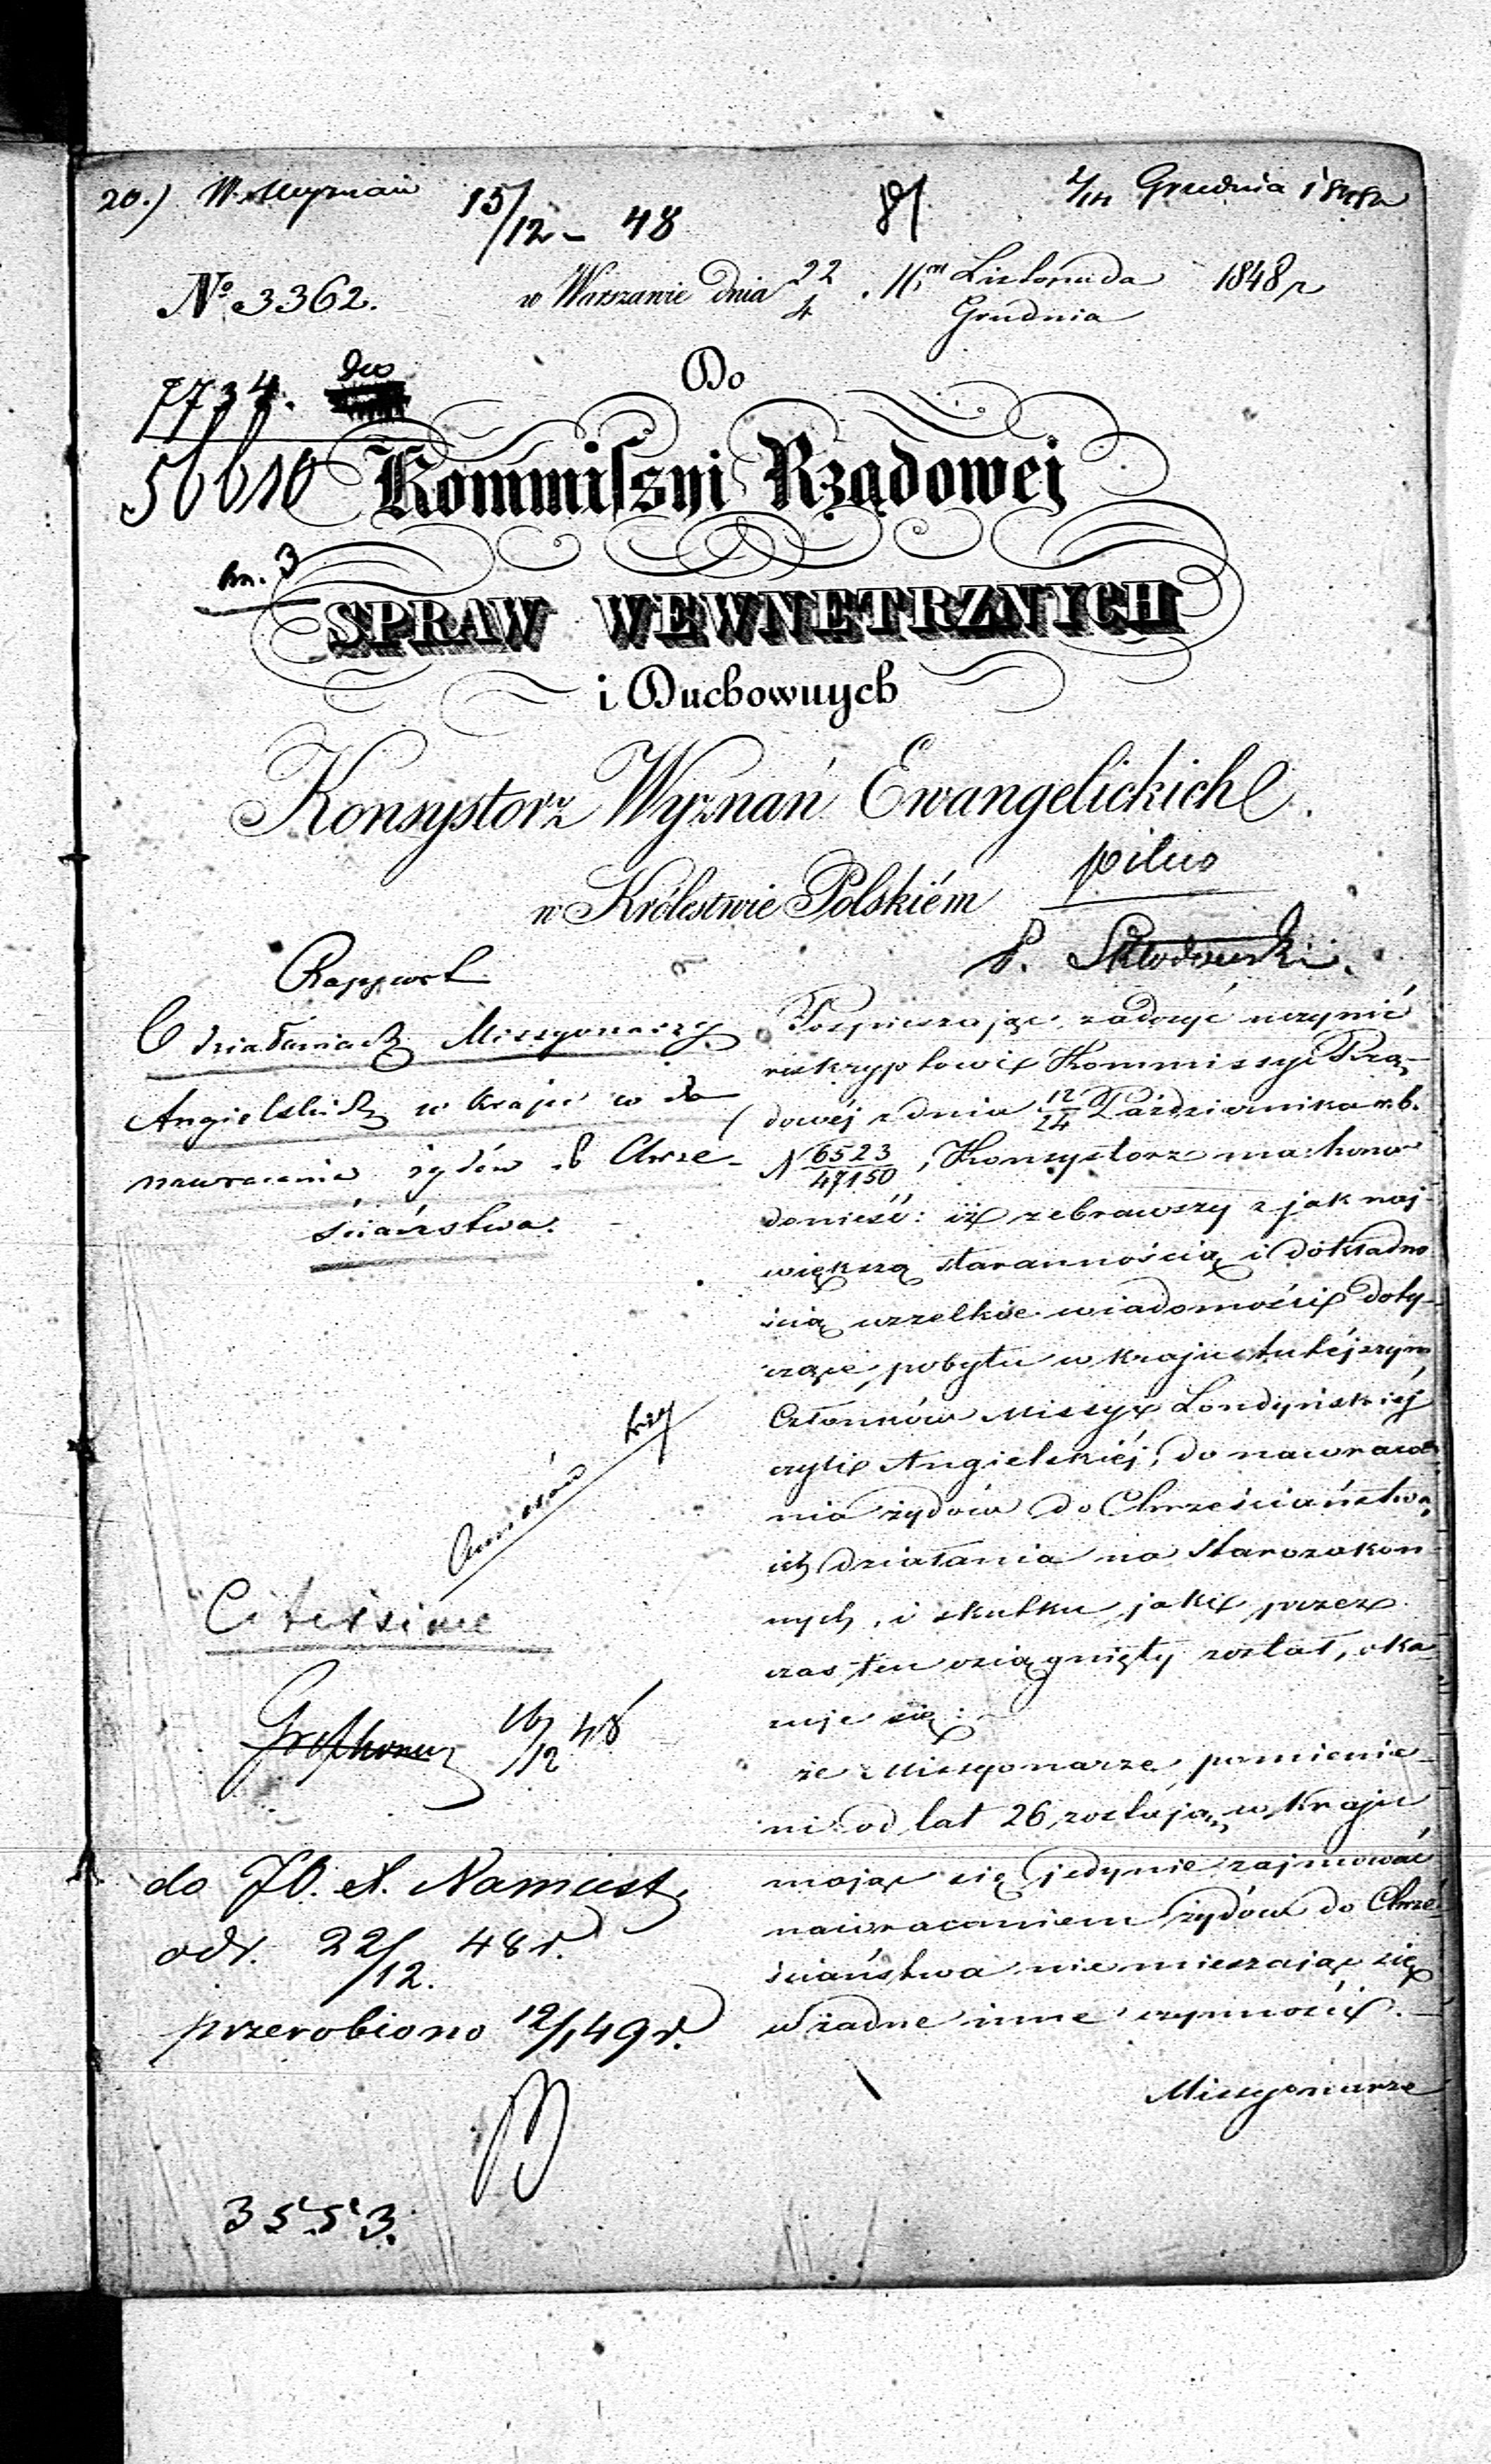 20.) W. Wyznań 15/12 - 48 2/14 Grudnia 1848 r
№ 3362. w Warszawie dnia 22/4 Listopada/Grudnia 1848 r
7734.
56610
Do
Kommiſsyi Rządowej
SPRAW WEWNĘTRZNYCH
i Duchownych
Konsystorz Wyznań Ewangelickich
w Królestwie Polskiém
pilno
P. Skłodowski.
Rapport
O działaniach Missyonarzy
Angielskich w kraju co do
nawracania żydów do Chrze-
ściaństwa.
Pospieszając zadosyć uczynić
reskryptowi Kommissyi Rzą-
dowéj z dnia 12/24 Października r. b.
N 6523/47150, Konsystorz ma honor
donieść: iż zebrawszy z jak naj-
większą starannością i dokładno
ścią wszelkie wiadomości doty-
czące pobytu w kraju tutéjszym
Członków Missyi Londyńskiej
czyli Angielskiéj, do nawraca-
nia żydów do Chrześciaństwa,
ich działania na Starozakon
nych, i skutku jaki przez
czas ten osiągnięty został, oka
zuje się: -
że Missyonarze pomienie-
ni od lat 26 zostają w Kraju
mając się jedynie zajmować
nawracaniem żydów do Chrze-
ściaństwa nie mieszając się
w żadne inne czynności. -
Missyonarze
Citissime
16/12 48
do JO. X. Namiest.
odr. 22/12. 48 r.
przerobiono 12/1 49 r.
3553.